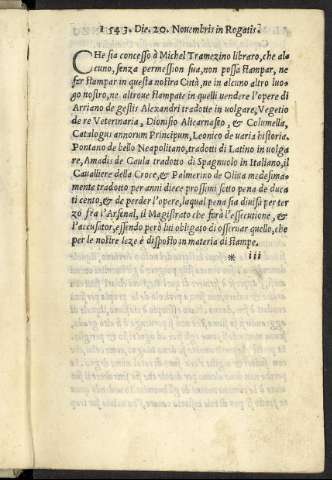 1543. Die. 20. Nouembris in Rogatis.
CHe sia concesso à Michel Tramezino libraro, che al-
cuno, senza permission sua, non possa stampar, ne
far stampar in questa nostra Città, ne in alcuno altro luo-
go nostro, ne altroue stampate in quelli uendere l'opere di
Arriano de gestis Alexandri tradotte in uolgare, Vegetio
de re Veterinaria, Dionisio Alicarnasseo, & Columella,
Catalogus annorum Principum, Leonico de uaria historia.
Pontano de bello Neapolitano, tradotti di Latino in uolga
re, Amadis de Gaula tradotto di Spagnuolo in Italiano, il
Caualliere della Croce, & Palmerino de Oliua medesima-
mente tradotto per anni diece prossimi sotto pena de duca
ti cento, & de perder l'opere, laqual pena sia diuisa per ter
zo fra l'Arsenal, il Magistrato che farà l'essecutione, &
l'accusator, essendo però lui obligato di osseruar quello, che
per le nostre leze è disposto in materia di stampe.
* iii